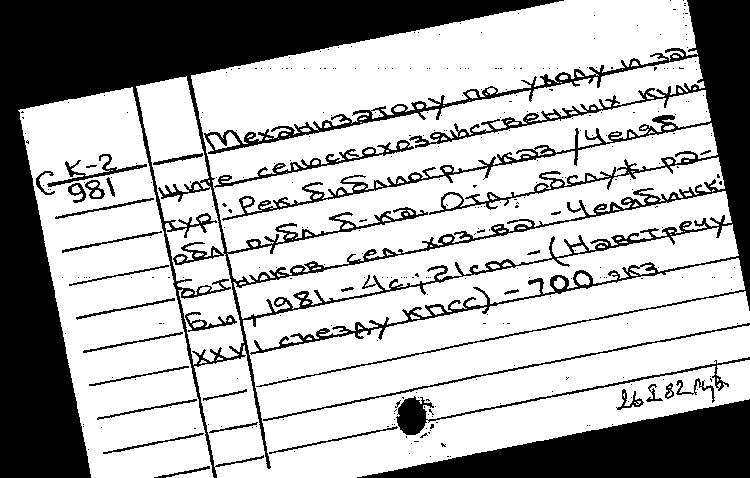 Механизатору по уходу и за-
С К-2
981
щите сельскохозяйственных куль-
тур: Рек. библиогр. указ / Челяб
обл публ. б-ка. Отд. обслуж. ра-
ботников сел. хоз-ва. - Челябинск:
Б.и, 1981. - 4с.; 21см - (Навстречу
XXVI съезду КПСС) - 700 экз.
26 I 82